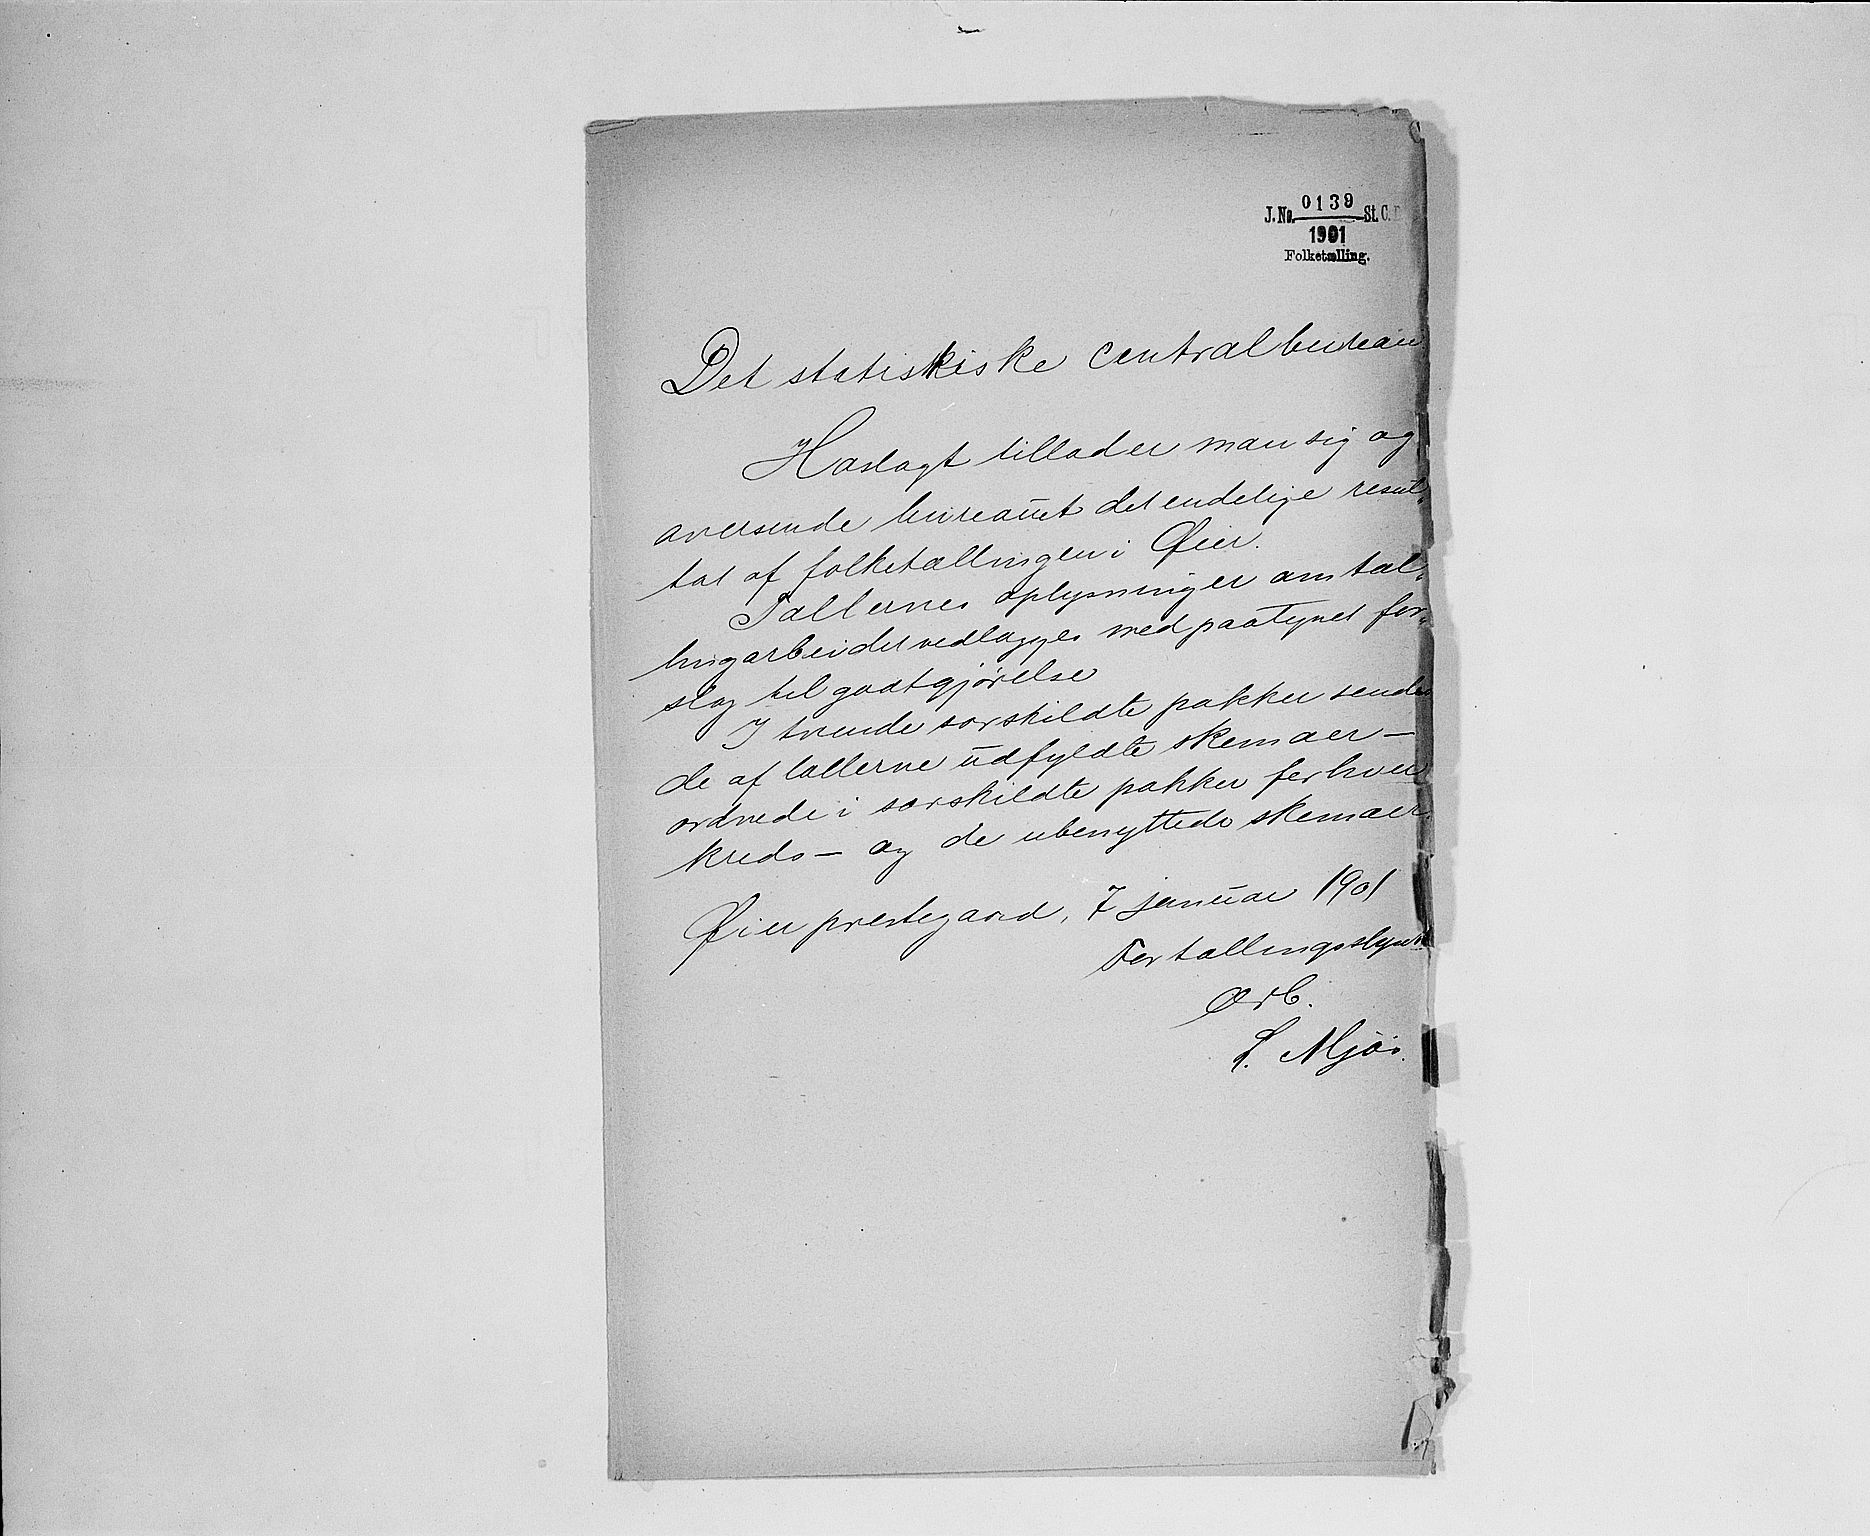 J.No. 0139 St. C.
1901
Folketælling.
Det statistiske centralbureau
Hoslagt tillader man sig og
oversende bureauet det endelige resul-
tat af folketællingen i Øier.
Tællernes oplysninger om tæl-
lingarbeidet vedlægges med paategnet for-
slag til godtgjørelse
I tvende særskildte pakker sendes
de af tællerne udfyldte skemaer —
ordnede i særskildte pakker for hver
kreds — og de ubenyttede skemaer.
Øier prestegaard, 7 januar 1901
For tællingsstyret
Ærb.
L. Mjøs.